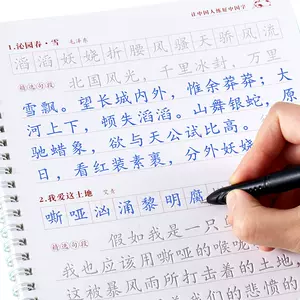 让中国人练好中国字
1.沁园春·雪 毛泽东
滔滔妖娆折腰风骚天骄风流
精选句段 北国风光，千里冰封，万里
雪飘。望长城内外，惟余莽莽；大
河上下，顿失滔滔。山舞银蛇，原
驰蜡象，欲与天公试比高。
日，看红装素裹，分外妖娆
2.我爱这土地 艾青
嘶哑汹涌黎明腐
精选句段 假如我是一只
我也应该用嘶哑的喉咙
这被暴风雨所打击着的土地
们的悲愤的